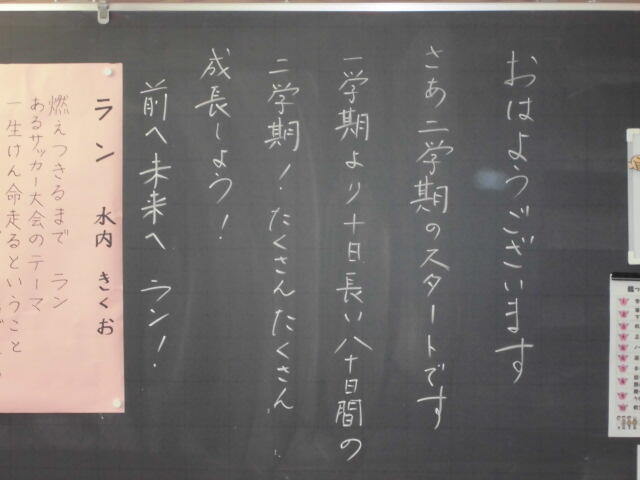 おはようございます
さあ二学期のスタートです
一学期より十日長い八十日間の
二学期！たくさんたくさん
成長しよう！
前へ未来へ ラン！
ラン 水内 きくお
燃えつきるまで ラン
あるサッカー大会のテーマ
一生けん命走るということ